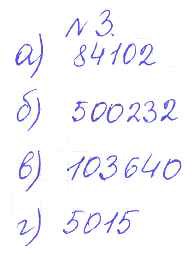 № 3.
а) 84102
б) 500232
в) 103640
г) 5015